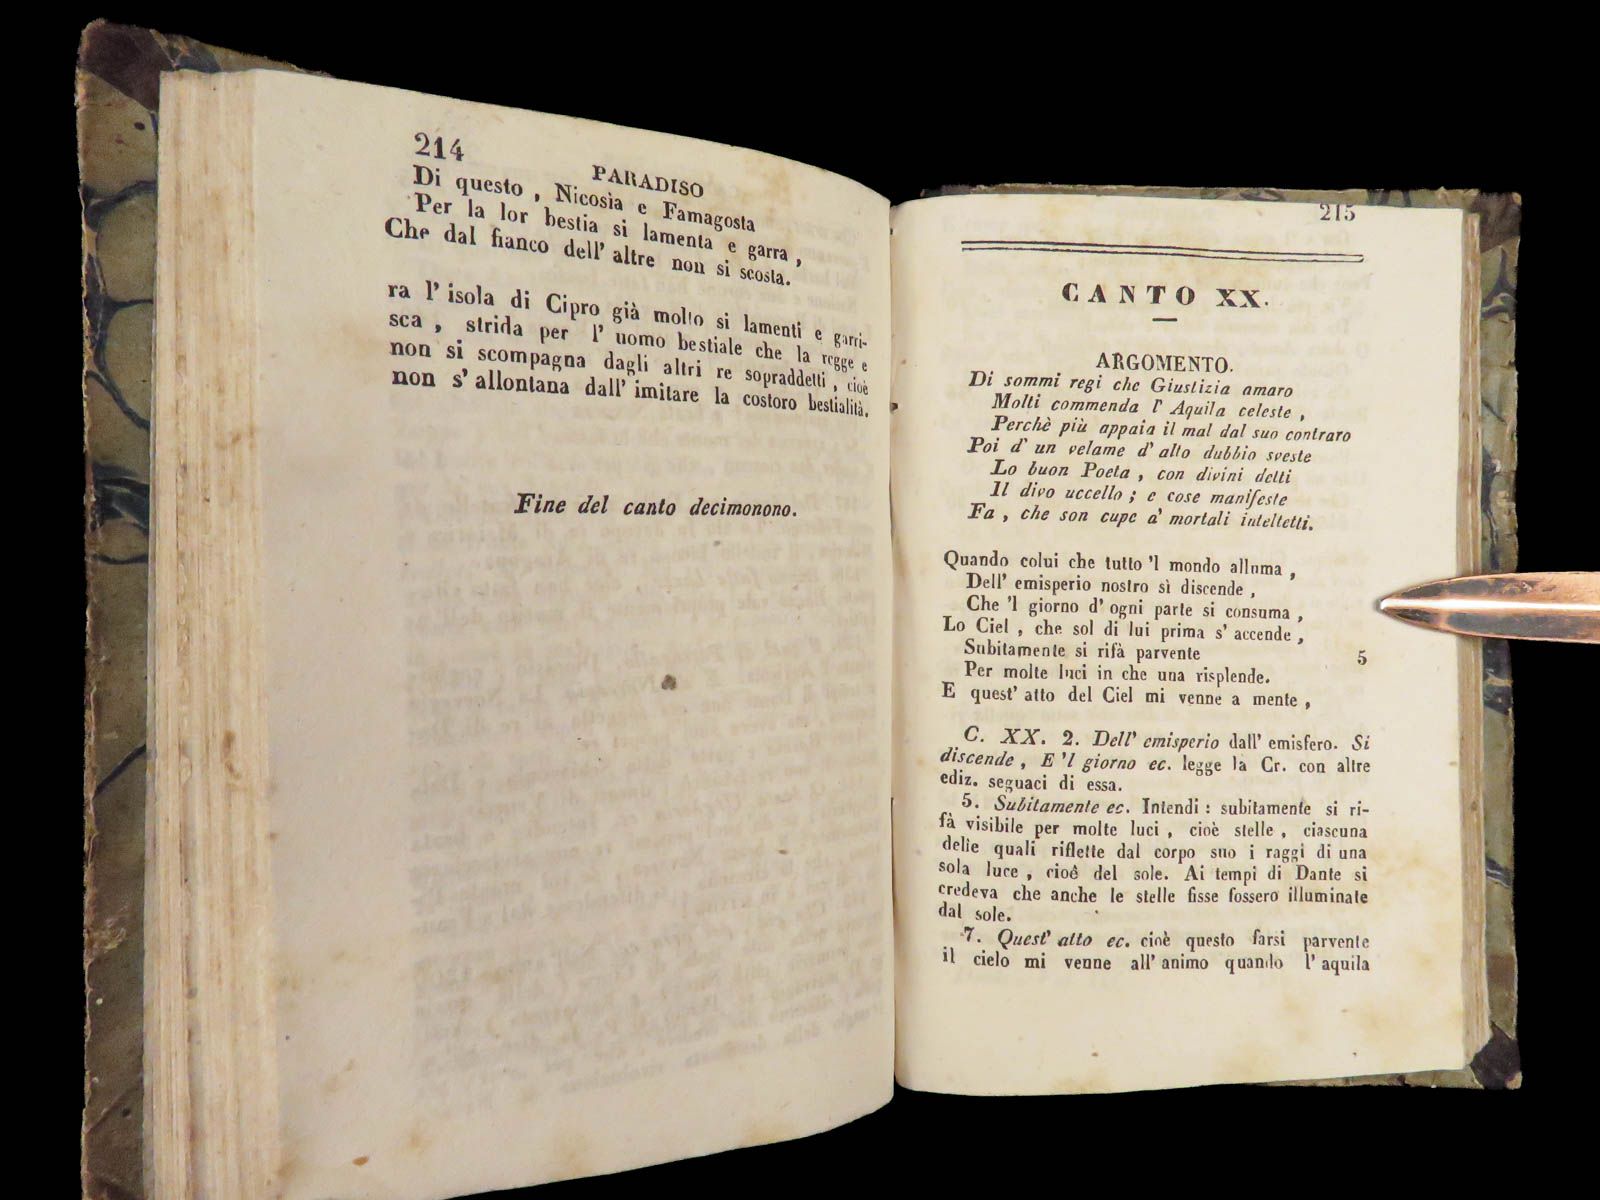 214
PARADISO
Di questo , Nicosia e Famagosta
Per la lor bestia si lamenta e garra ,
Che dal fianco dell' altre non si scosta.
ra l' isola di Cipro già molto si lamenti e garri-
sca , strida per l' uomo bestiale che la regge e
non si scompagna dagli altri re sopraddetti , cioè
non s' allontana dall' imitare la costoro bestialità.
Fine del canto decimonono.
215
CANTO XX.
ARGOMENTO.
Di sommi regi che Giustizia amaro
Molti commenda l' Aquila celeste ,
Perchè più appaia il mal dal suo contraro
Poi d' un velame d' alto dubbio sveste
Lo buon Poeta , con divini detti
Il divo uccello ; e cose manifeste
Fa , che son cupe a' mortali intelletti.
Quando colui che tutto 'l mondo alluma ,
Dell' emisperio nostro sì discende ,
Che 'l giorno d' ogni parte si consuma ,
Lo Ciel , che sol di lui prima s' accende ,
Subitamente si rifà parvente 5
Per molte luci in che una risplende.
E quest' atto del Ciel mi venne a mente ,
C. XX. 2. Dell' emisperio dall' emisfero. Si
discende , E 'l giorno ec. legge la Cr. con altre
ediz. seguaci di essa.
5. Subitamente ec. Intendi : subitamente si ri-
fà visibile per molte luci , cioè stelle , ciascuna
delle quali riflette dal corpo suo i raggi di una
sola luce , cioè del sole. Ai tempi di Dante si
credeva che anche le stelle fisse fossero illuminate
dal sole.
7. Quest' atto ec. cioè questo farsi parvente
il cielo mi venne all' animo quando l' aquila